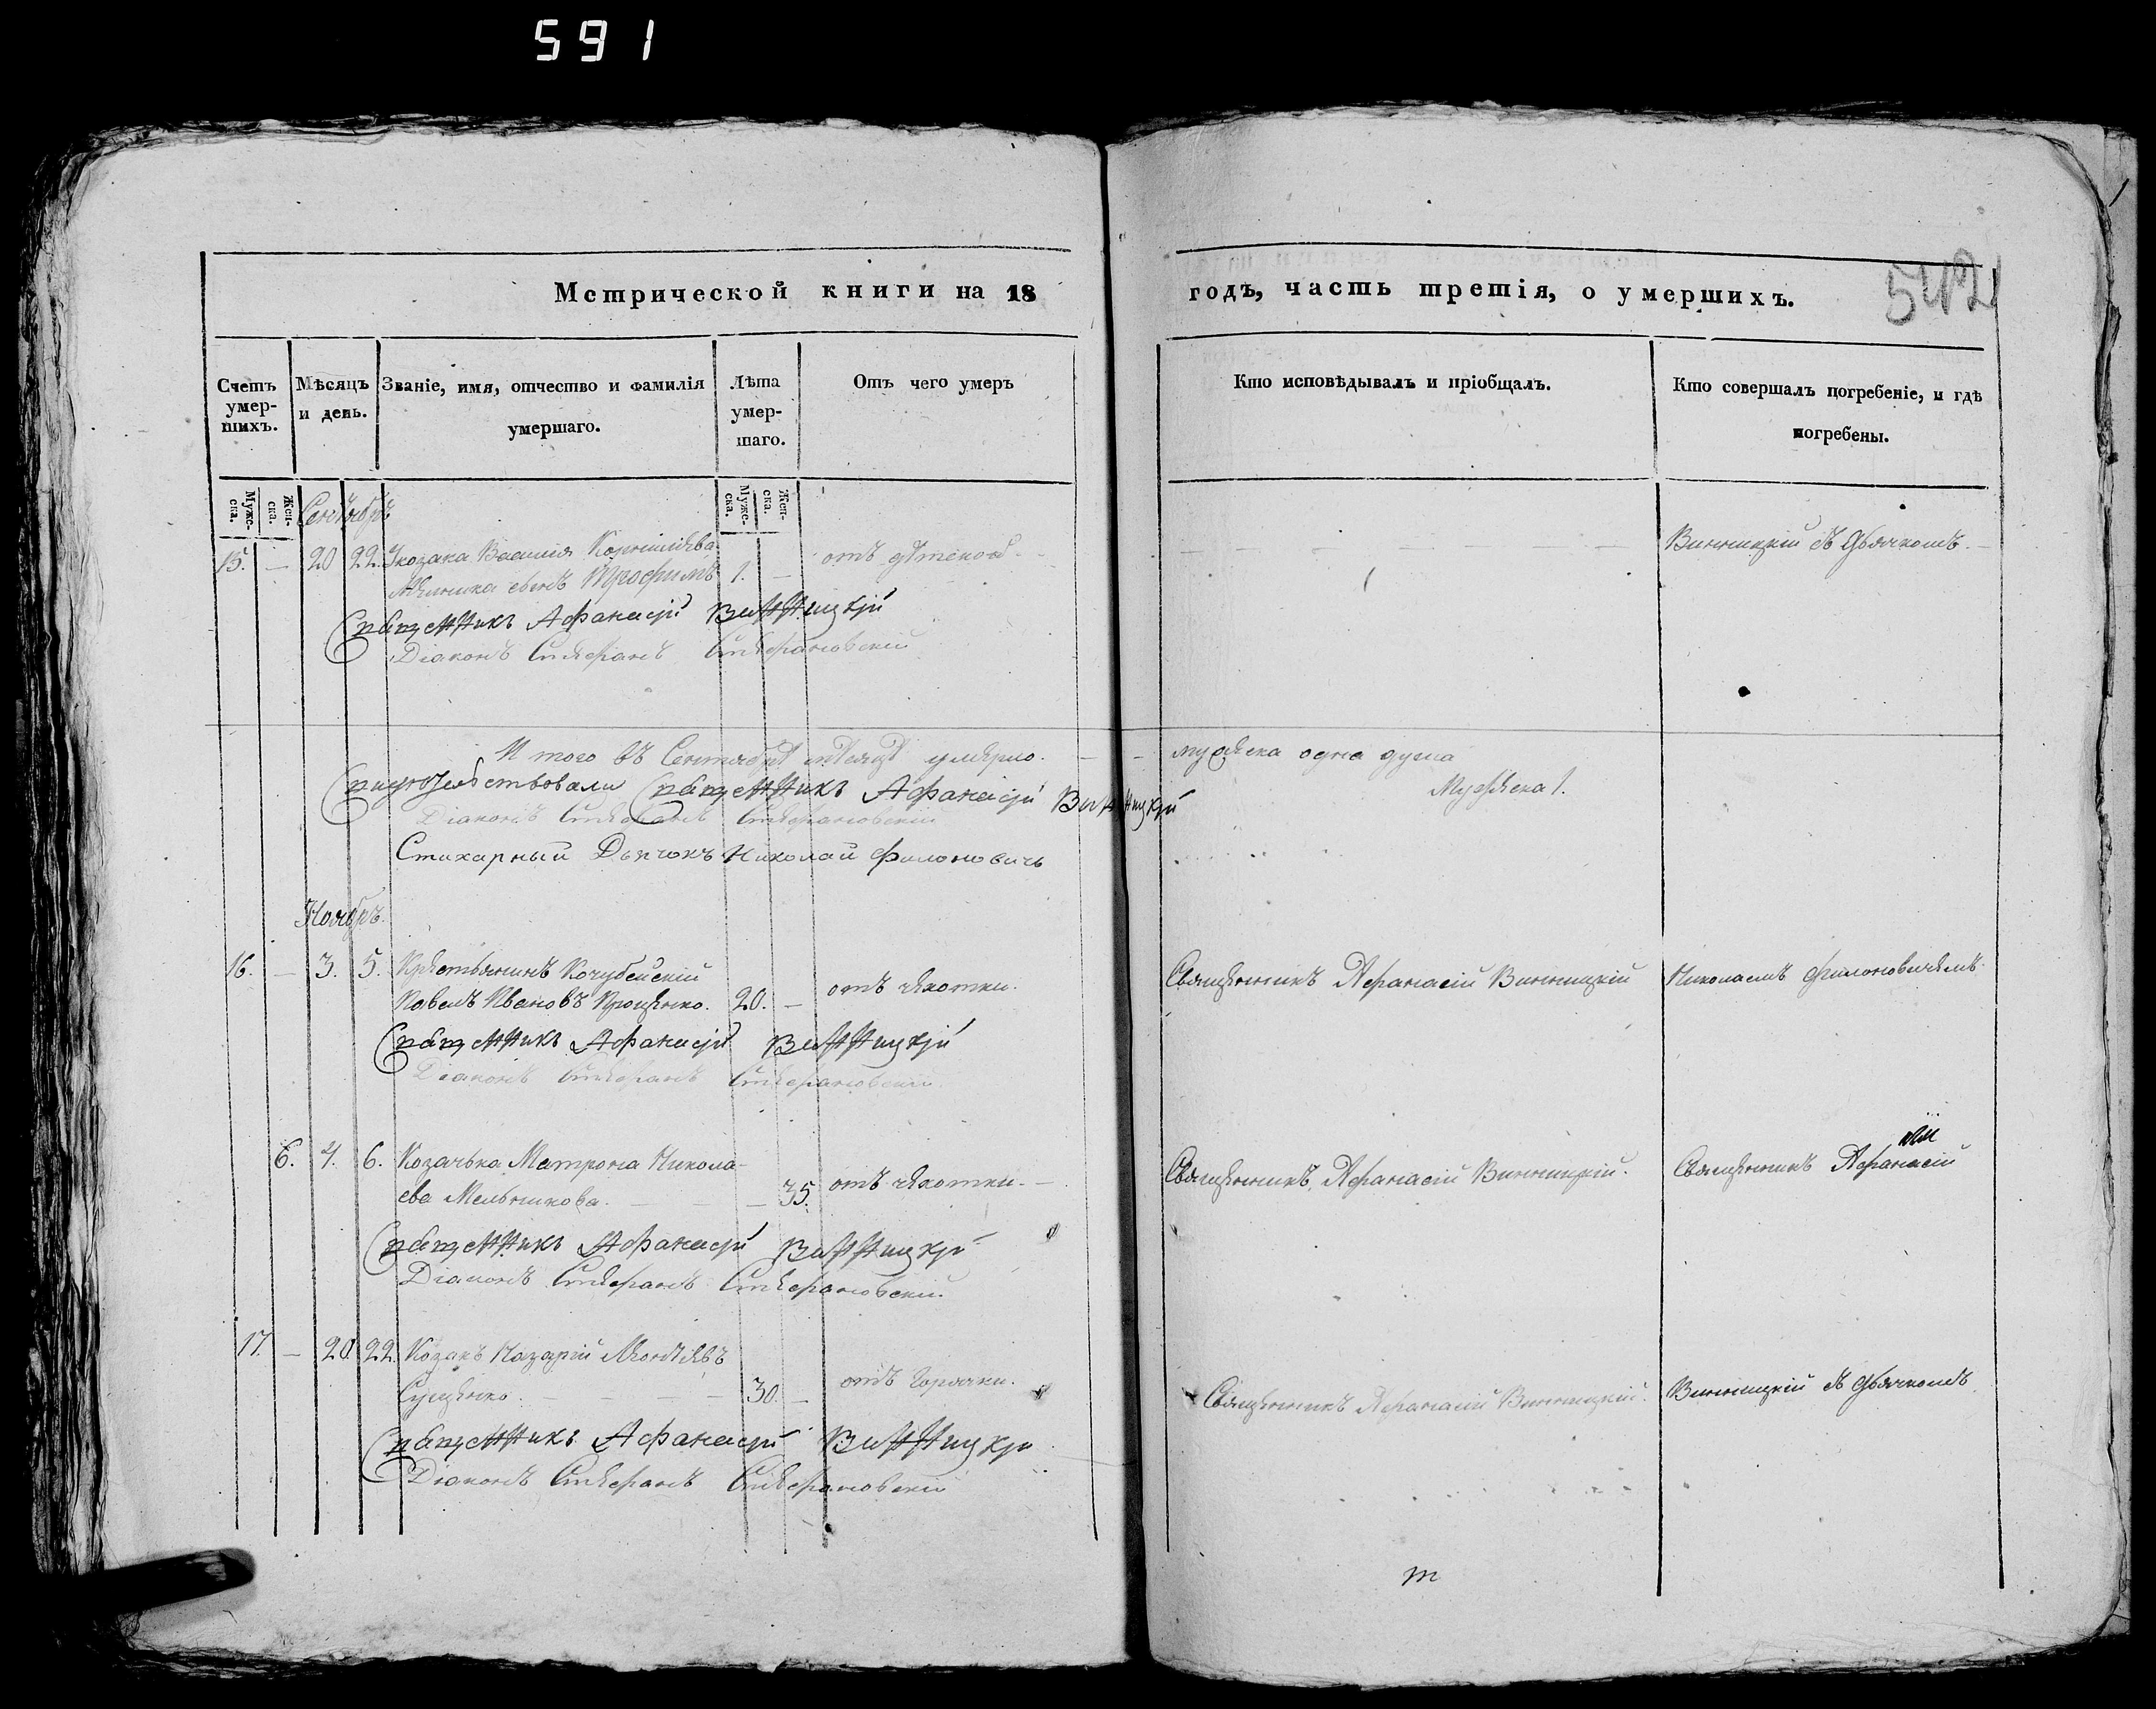 591
Метрической книги на 18
годъ, часть третія, о умершихъ.
542
Счетъ умер-шихъ.
Мѣсяцъ и день.
Званіе, имя, отчество и фамилія умершаго.
Лѣта умер-шаго.
Отъ чего умеръ
Кто исповѣдывалъ и пріобщалъ.
Кто совершалъ погребеніе, и гдѣ погребены.
Муже-ска. Жен-ска.
Муже-ска. Жен-ска.
Сентябрь
15. — 20 22. Укозака Василія Корнилiева
Мельника сынъ Трофимъ 1. — отъ дѣтской
Винницкій съ дьячкомъ.
Священникъ Афанасій Винницкій
Діаконъ Стефанъ Стефановскій
И того въ Сентябрѣ мѣсяцѣ умерло. — — мужеска одна душа
Мужеска 1.
Свидѣтельствовали Священникъ Афанасій Винницкій
Діаконъ Стефанъ Стефановскій
Стихарный Дьячокъ Николай Филоновичь
Ноябрь.
16. — 3. 5. Крестьянинъ Кочубейскій
Павелъ Ивановъ 20. — отъ чахотки.
Священникъ Афанасій Винницкій
Николаемъ Филоновичемъ.
Священникъ Афанасій Винницкій
Діаконъ Стефанъ Стефановскій
6. 4. 6. Козачька Матрона Никола-
ева Мельникова. — — — 35. отъ чахотки. —
Священникъ Афанасій Винницкій.
Священникъ Афанасій
Священникъ Афанасій Винницкій
Діаконъ Стефанъ Стефановскій
17. — 20. 22. Козакъ Назарій
Сущенко. — — — — 30. — отъ горячки.
Священникъ Афанасій Винницкій.
Винницкій съ дьячкомъ
Священникъ Афанасій Винницкій
Діаконъ Стефанъ Стефановскій
т